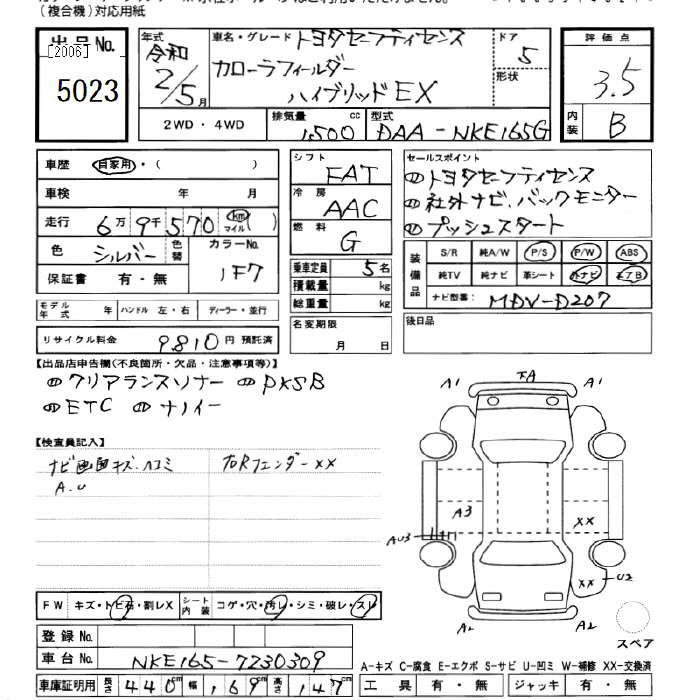 (複合機)対応用紙
出品No. [2006] 5023
年式 令和 2/5月
車名・グレード トヨタセーフティセンス
カローラフィールダー
ハイブリッドEX
ドア 5
形状
評価点 3.5
内装 B
2WD・4WD
排気量 1500 cc
型式 DAA-NKE165G
車歴 自家用・( )
車検 年 月
走行 6万9千570 km マイル ( )
色 シルバー 色替 カラーNo. 1F7
保証書 有・無
モデル年式 年 ハンドル 左・右 ディーラー・並行
リサイクル料金 9810円 預託済
シフト FAT
冷房 AAC
燃料 G
乗車定員 5名
積載量 kg
総重量 kg
名変期限 月 日
セールスポイント
① トヨタセーフティセンス
② 社外ナビ、バックモニター
③ プッシュスタート
装備品 S/R 純A/W P/S P/W ABS
純TV 純ナビ 革シート 外ナビ エアB
ナビ型番: MDV-D207
後日品
【出品店申告欄(不良箇所・欠品・注意事項等)】
クリアランスソナー PKSB
ETC ナノイー
【検査員記入】
ナビ画面キズ、ヘコミ
A.U
右Rフェンダー XX
A1 下A A1
A3 XX
AU3
XX U2
A2 A2
スペア
FW キズ・トビ石・割レX シート内装 コゲ・穴・汚レ・シミ・破レ・スレ
登録No.
車台No. NKE165-7230309
A-キズ C-腐食 E-エクボ S-サビ U-凹ミ W-補修 XX-交換済
車庫証明用 長さ 440cm 幅 169cm 高さ 147cm
工具 有・無 ジャッキ 有・無